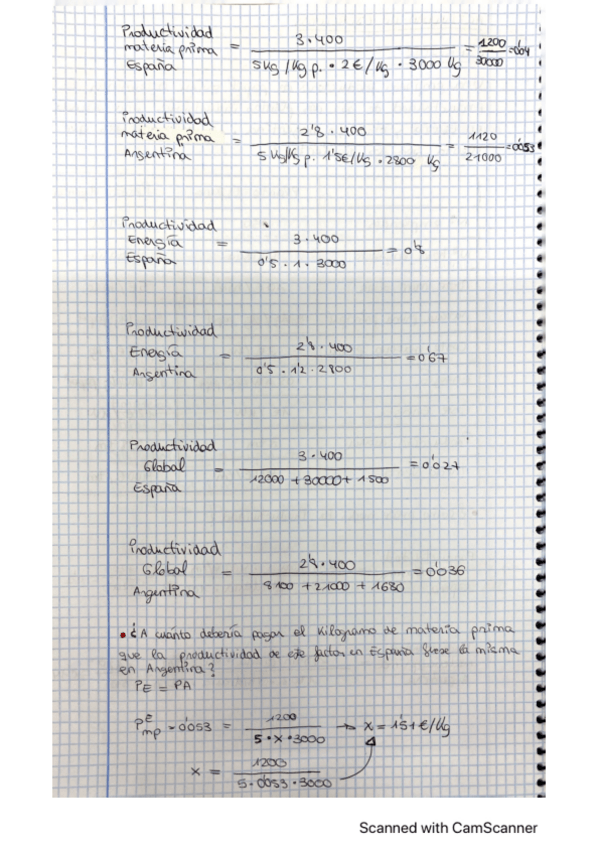 Productividad
materia prima = 3·400 / 5 Kg/Kg p. · 2€/Kg · 3000 Kg = 1200/30000 = 0'04
España
Productividad
materia prima = 2'8·400 / 5 Kg/Kg p. 1'5€/Kg · 2800 Kg = 1120/21000 = 0'053
Argentina
Productividad
Energía = 3·400 / 0'5·1·3000 = 0'8
España
Productividad
Energía = 2'8·400 / 0'5·1'2·2800 = 0'67
Argentina
Productividad
Global = 3·400 / 12000 + 30000 + 1500 = 0'027
España
Productividad
Global = 2'8·400 / 8400 + 21000 + 1680 = 0'036
Argentina
• ¿A cuánto debería pagar el Kilogramo de materia prima
que la productividad de este factor en España fuese la misma
en Argentina?
PE = PA
P E mp = 0'053 = 1200 / 5·x·3000 → x = 1'51€/Kg
x = 1200 / 5·0'053·3000
Scanned with CamScanner